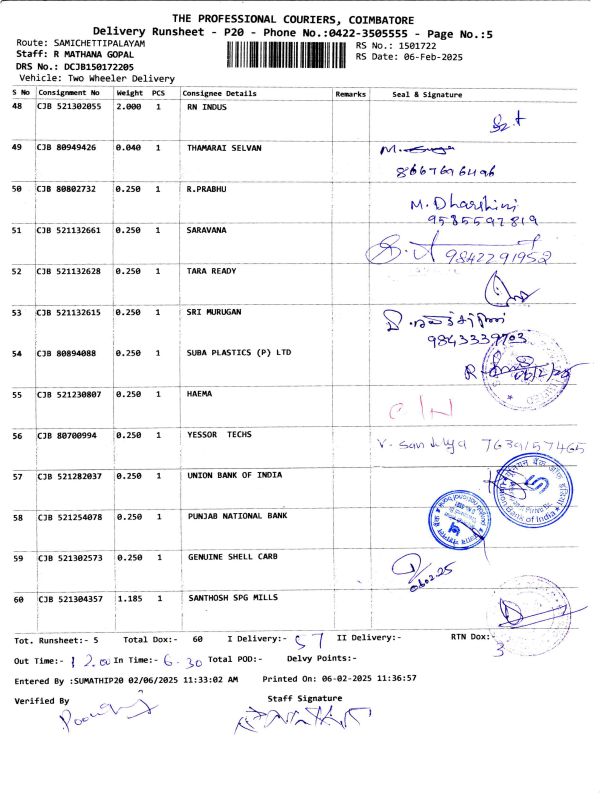 THE PROFESSIONAL COURIERS, COIMBATORE
Delivery Runsheet - P20 - Phone No.:0422-3505555 - Page No.:5
Route: SAMICHETTIPALAYAM RS No.: 1501722
Staff: R MATHANA GOPAL RS Date: 06-Feb-2025
DRS No.: DCJB150172205
Vehicle: Two Wheeler Delivery
S No Consignment No Weight PCS Consignee Details Remarks Seal & Signature
48 CJB 521302055 2.000 1 RN INDUS
49 CJB 80949426 0.040 1 THAMARAI SELVAN
8667696496
50 CJB 80802732 0.250 1 R.PRABHU M. Dharshini
9585597819
51 CJB 521132661 0.250 1 SARAVANA
9842291952
52 CJB 521132628 0.250 1 TARA READY
53 CJB 521132615 0.250 1 SRI MURUGAN
9843339703
54 CJB 80894088 0.250 1 SUBA PLASTICS (P) LTD
06/2/25
55 CJB 521230807 0.250 1 HAEMA
56 CJB 80700994 0.250 1 YESSOR TECHS V. Sandhya 7639157465
57 CJB 521282037 0.250 1 UNION BANK OF INDIA
Union Bank of India
58 CJB 521254078 0.250 1 PUNJAB NATIONAL BANK
punjab national bank
59 CJB 521302573 0.250 1 GENUINE SHELL CARB
06.02.25
60 CJB 521304357 1.185 1 SANTHOSH SPG MILLS
Tot. Runsheet:- 5 Total Dox:- 60 I Delivery:- 57 II Delivery:- RTN Dox:- 3
Out Time:- 12.00 In Time:- 6.30 Total POD:- Delvy Points:-
Entered By :SUMATHIP20 02/06/2025 11:33:02 AM Printed On: 06-02-2025 11:36:57
Verified By Staff Signature